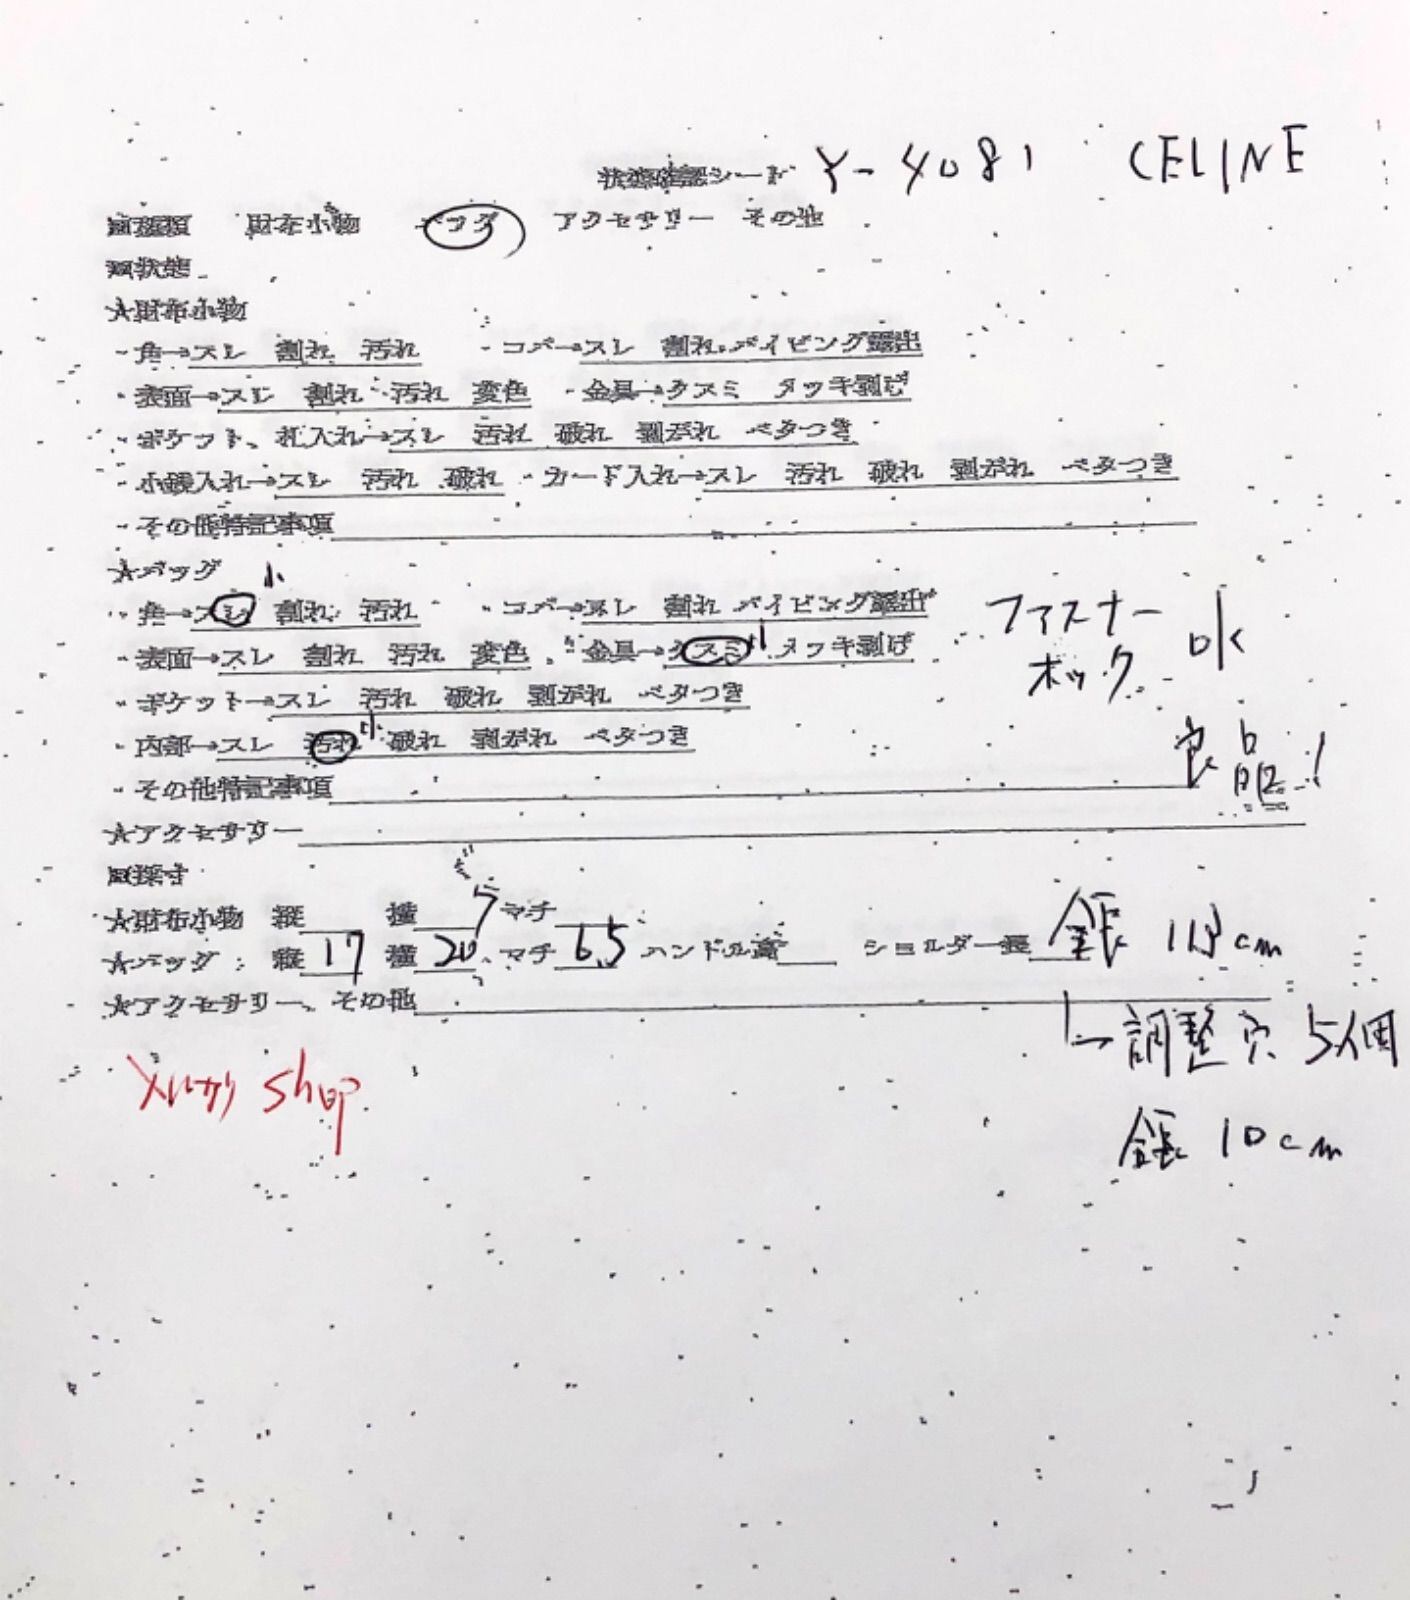 状態確認シート Y-4081 CELINE
■種類 財布小物 バッグ アクセサリー その他
■状態
★財布小物
・角→スレ 割れ 汚れ ・コバ→スレ 割れ パイピング露出
・表面→スレ 割れ 汚れ 変色 ・金具→クスミ メッキ剥げ
・ポケット、札入れ→スレ 汚れ 破れ 剥がれ ベタつき
・小銭入れ→スレ 汚れ 破れ ・カード入れ→スレ 汚れ 破れ 剥がれ ベタつき
・その他特記事項
★バッグ
・角→スレ小 割れ 汚れ ・コバ→スレ 割れ パイピング露出
・表面→スレ 割れ 汚れ 変色 ・金具→クスミ小 メッキ剥げ
ファスナー
ホック OK
・ポケット→スレ 汚れ 破れ 剥がれ ベタつき
・内部→スレ 汚れ小 破れ 剥がれ ベタつき
良品!
・その他特記事項
★アクセサリー
■採寸
★財布小物 縦 横 マチ
★バッグ:縦 17 横 20 マチ 6.5 ハンドル高 ショルダー長 全長 113cm
★アクセサリー、その他
→調整穴 5個
全長 10cm
メルカリ shop